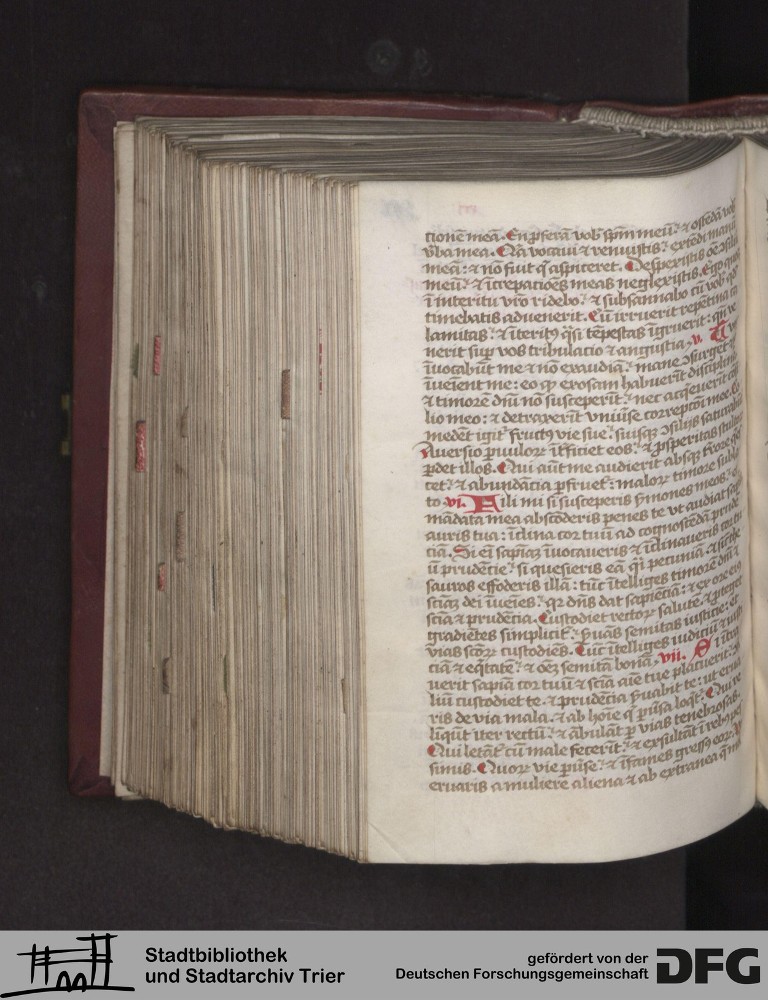 tionē meā. En ꝓferā vob̄ spm̄ meū: ⁊ ostēdā vob̄
v̄ba mea. Q̄a vocaui ⁊ renuistis: extēdi manū
meā: ⁊ nō fuit q̄ aspiceret. Despexistis oē ↄsiliū
meū: ⁊ īcrepatiōes meas neglexistis. Ego quoq̄
ī interitu vr̄o ridebo: ⁊ subsannabo cū vob̄ qd̄
timebatis aduenerit. Cū irruerit repētina ca
lamitas: ⁊ īterit9 q̄si tēpestas īgruerit: qn̄ ve
nerit suꝑ vos tribulacio ⁊ angustia. v. Tūc
īuocabūt me ⁊ nō exaudiā: mane ↄsurgēt ⁊ nō
īueiēnt me: eo ꝙ exosam habuerīt disciplinā
⁊ timorē dn̄i nō susceperīt: nec acq̄euerīt ↄsi
lio meo: ⁊ detraxerīt vniūse correptōi mee. Co
medēt igit̄ fruct9 vie sue: suisqꝫ ↄsilijs saturabūt̄
Auersio ꝑuuloꝝ īt̄ficiet eos: ⁊ ꝓsperitas stultoꝝ
ꝑdet illos. Qui aūt me audierit absqꝫ t̄rore q̄es
cet: ⁊ abundācia ꝑfruet̄: maloꝝ timore subla
to. vi. Fili mi si susceperis s̄mones meos: ⁊
mādata mea abscōderis penes te vt audiat sapiēciā
auris tua: īclina cor tuū ad cognoscēdā prudē
ciā. Si eī sapiaꝫ īuocaueris ⁊ īclinaueris cor tuū
ū prudēcie: si quesieris eā q̄i pecuniā ⁊ sic̄ the
sauros effoderis illā: tūc ītelliges timorē dn̄i ⁊
sciaꝫ dei īueīes: qꝛ dn̄s dat sapiēciā: ⁊ ex ore ei9
sciā ⁊ prudēcia. Custodiet rectoꝝ salutē: ⁊ ꝓteget
gradiētes simplicit̄: s̄uās semitas iusticie: et
vias scōꝝ custodiēs. Tūc ītelliges iudiciū ⁊ iusti
ciā ⁊ eq̄tatē: ⁊ oēꝫ semitā bonā. vii. Si īt̄ra
uerit sapīa cor tuū ⁊ sciā aīe tue placuerit: ↄsi
liū custodiet te: ⁊ prudēcia s̄uabit te: ut erua
ris de via mala: ⁊ ab hoīe q̄ ꝑūsa loqt̄. Qui re
līqūt iter rectū: ⁊ ābulāt ꝑ vias tenebrosas.
Qui letāt̄ cū male fecerīt: ⁊ exsultāt ī rebꝫ pes
simis. Quoꝝ vie ꝑūse: ⁊ īfames gress9 eoꝝ. Vt
eruaris a muliere aliena ⁊ ab extranea q̄ mol
Stadtbibliothek
und Stadtarchiv Trier
gefördert von der
Deutschen Forschungsgemeinschaft
DFG